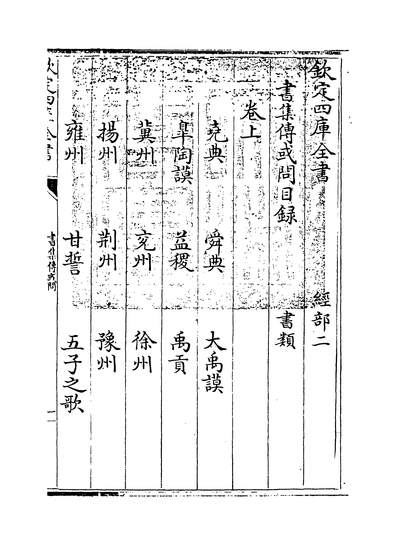 欽定四庫全書　經部二
書集傳或問目録　書類
卷上
堯典　舜典　大禹謨
臯陶謨　益稷　禹貢
冀州　兖州　徐州
揚州　荆州　豫州
雍州　甘誓　五子之歌
欽定四庫全書
書集傳或問
一